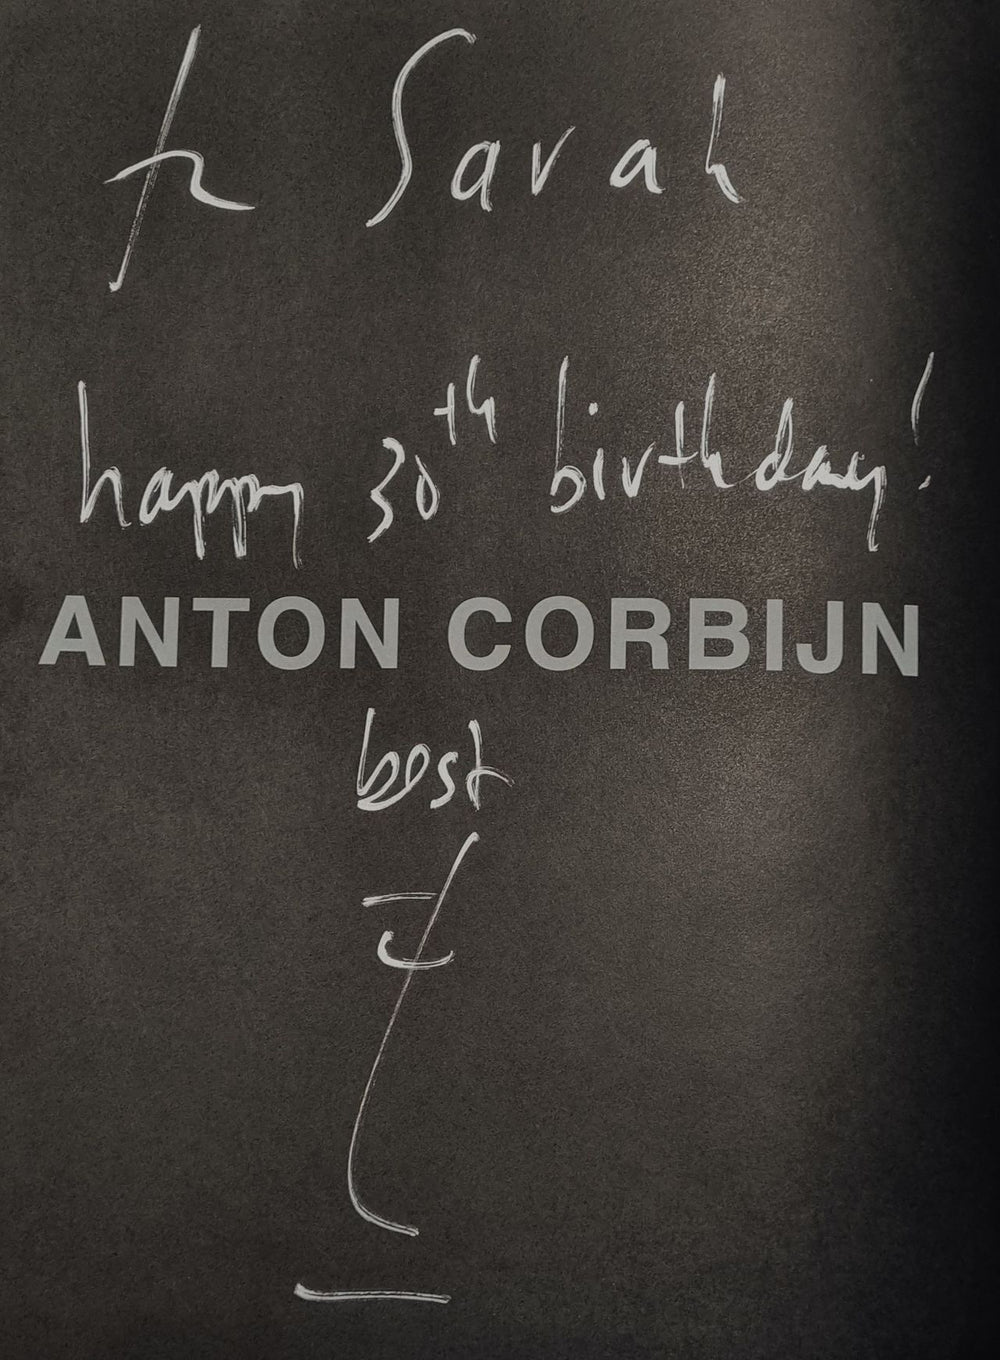 to Sarah
happy 30th birthday!
ANTON CORBIJN
best